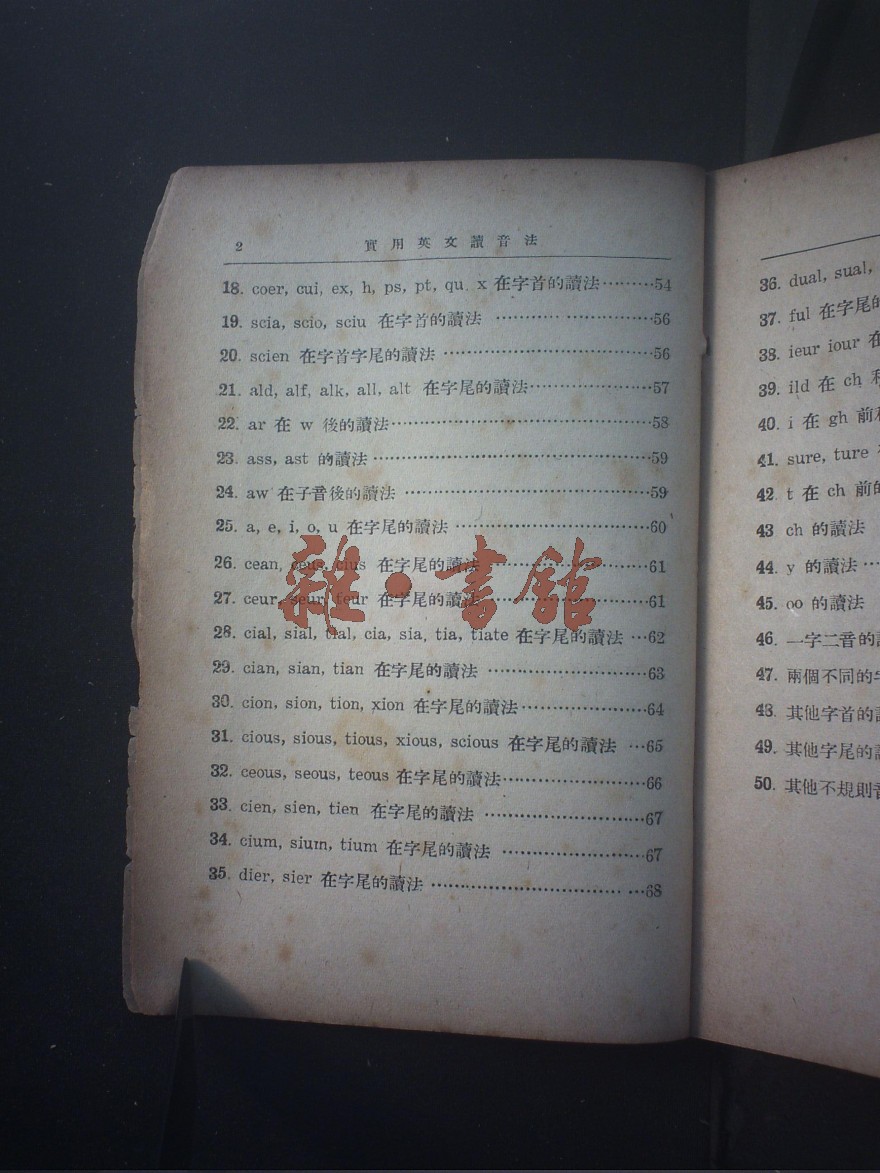 2 實用英文讀音法
18. coer, cui, ex, h, ps, pt, qu, x 在字首的讀法·········54
19. scia, scio, sciu 在字首的讀法 ························56
20. scien 在字首字尾的讀法 ································56
21. ald, alf, alk, all, alt 在字尾的讀法··················57
22. ar 在 w 後的讀法······································58
23. ass, ast 的讀法 ········································59
24. aw 在子音後的讀法 ····································59
25. a, e, i, o, u 在字尾的讀法 ····························60
26. cean, ceus, cius 在字尾的讀法 ························61
27. ceur, seur, teur 在字尾的讀法··························61
28. cial, sial, tial, cia, sia, tia, tiate 在字尾的讀法 ···62
29. cian, sian, tian 在字尾的讀法 ························63
30. cion, sion, tion, xion 在字尾的讀法···················64
31. cious, sious, tious, xious, scious 在字尾的讀法 ···65
32. ceous, seous, teous 在字尾的讀法·····················66
33. cien, sien, tien 在字尾的讀法 ························67
34. cium, sium, tium 在字尾的讀法 ·····················67
35. dier, sier 在字尾的讀法 ······························68
雜·書館
36. dual, sual,
37. ful 在字尾的
38. ieur iour 在
39. ild 在 ch 和
40. i 在 gh 前
41. sure, ture
42. t 在 ch 前的
43 ch 的讀法
44. y 的讀法···
45. oo 的讀法
46. 一字二音的
47. 兩個不同的字
48. 其他字首的讀
49. 其他字尾的讀
50. 其他不規則音